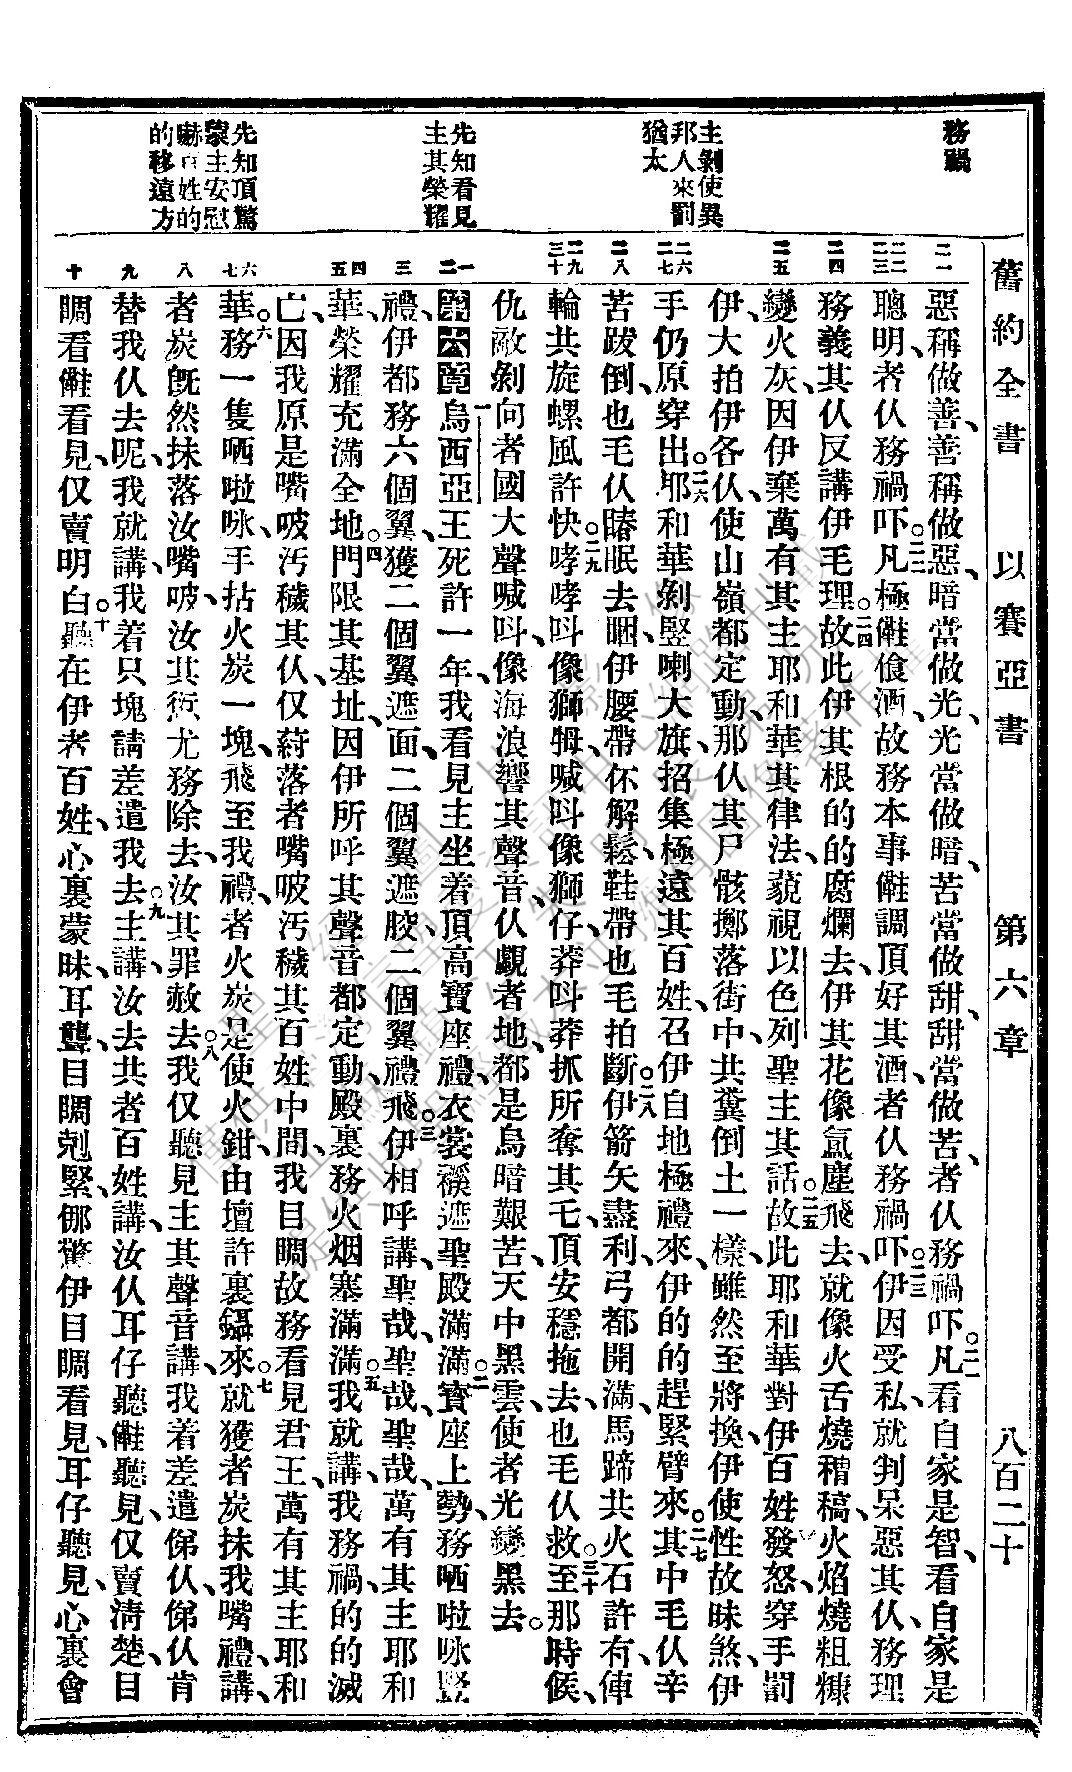 舊約全書 以賽亞書 第六章 八百二十
務禍
主剝使異
邦人來罰
猶太
先知看見
主其榮耀
先知頂驚
蒙主安慰
嚇百姓的
的移遠方
二一
惡稱做善、善稱做惡、暗當做光、光當做暗、苦當做甜、甜當做苦、者仈務禍吓。二一凡看自家是智、看自家是
二二 二三
聰明、者仈務禍吓。二二凡極儺食酒、故務本事儺調頂好其酒、者仈務禍吓。二三伊因受私、就判呆惡其仈、務理
二四
務義其仈、反講伊毛理。二四故此伊其根的的腐爛去、伊其花像氳塵飛去、就像火舌燒稭稿、火焰燒粗糠
二五
變火灰、因伊棄萬有其主耶和華其律法、藐視以色列聖主其話。二五故此耶和華對伊百姓發怒、穿手罰
伊、大拍伊各仈、使山嶺都定動、那仈其尸骸擲落街中、共糞倒土一樣、雖然至將換、伊使性故昧煞、伊
二六 二七
手仍原穿出。二六耶和華剝豎喇大旗、招集極遠其百姓、召伊自地極禮來、伊的的趕緊臂來。二七其中毛仈辛
二八
苦跋倒、也毛仈䁅眠去𪾢、伊腰帶伓解鬆、鞋帶也毛拍斷。二八伊箭矢盡利、弓都開滿、馬蹄共火石許有俥
二九 三十
輪共旋螺風許快。二九哮哮呌、像獅㹥喊呌、像獅仔莽呌莽抓所奪其乇、頂安穩拖去、也毛仈救。三十至那時候、
仇敵剝向者國大聲喊呌、像海浪響其聲音、仈覷者地、都是烏暗艱苦、天中黑雲、使者光變黑去。
一 二
第六章 一烏西亞王死許一年、我看見主坐着頂高寶座禮、衣裳襥遮聖殿滿滿。二寶座上勢、務哂啦咏豎
三
禮、伊都務六個翼、獲二個翼遮面、二個翼遮骹、二個翼禮飛。三伊相呼講、聖哉、聖哉、聖哉、萬有其主耶和
四 五
華、榮耀充滿全地。四門限其基址、因伊所呼其聲音都定動、殿裏務火烟塞滿滿。五我就講、我務禍、的的滅
亡、因我原是嘴𠯿汚穢其仈、仅蒔落者嘴𠯿汚穢其百姓中間、我目睭故務看見君王、萬有其主耶和
六 七
華。六務一隻哂啦咏、手拈火炭一塊、飛至我禮、者火炭是使火鉗由壇許裏鑷來。七就獲者炭抹我嘴禮、講、
八
者炭既然抹落汝嘴𠯿、汝其愆尤務除去、汝其罪赦去。八我仅聽見主其聲音講、我着差遣俤仈、俤仈肯
九
替我仈去呢、我就講、我着只塊、請差遣我去。九主講、汝去共者百姓講、汝仈耳仔聽儺聽見、仅賣淸楚、目
十
睭看儺看見、仅賣明白。十聽在伊者百姓、心裏蒙昧、耳聾、目睭剋緊、𠆧驚伊目睭看見、耳仔聽見、心裏會